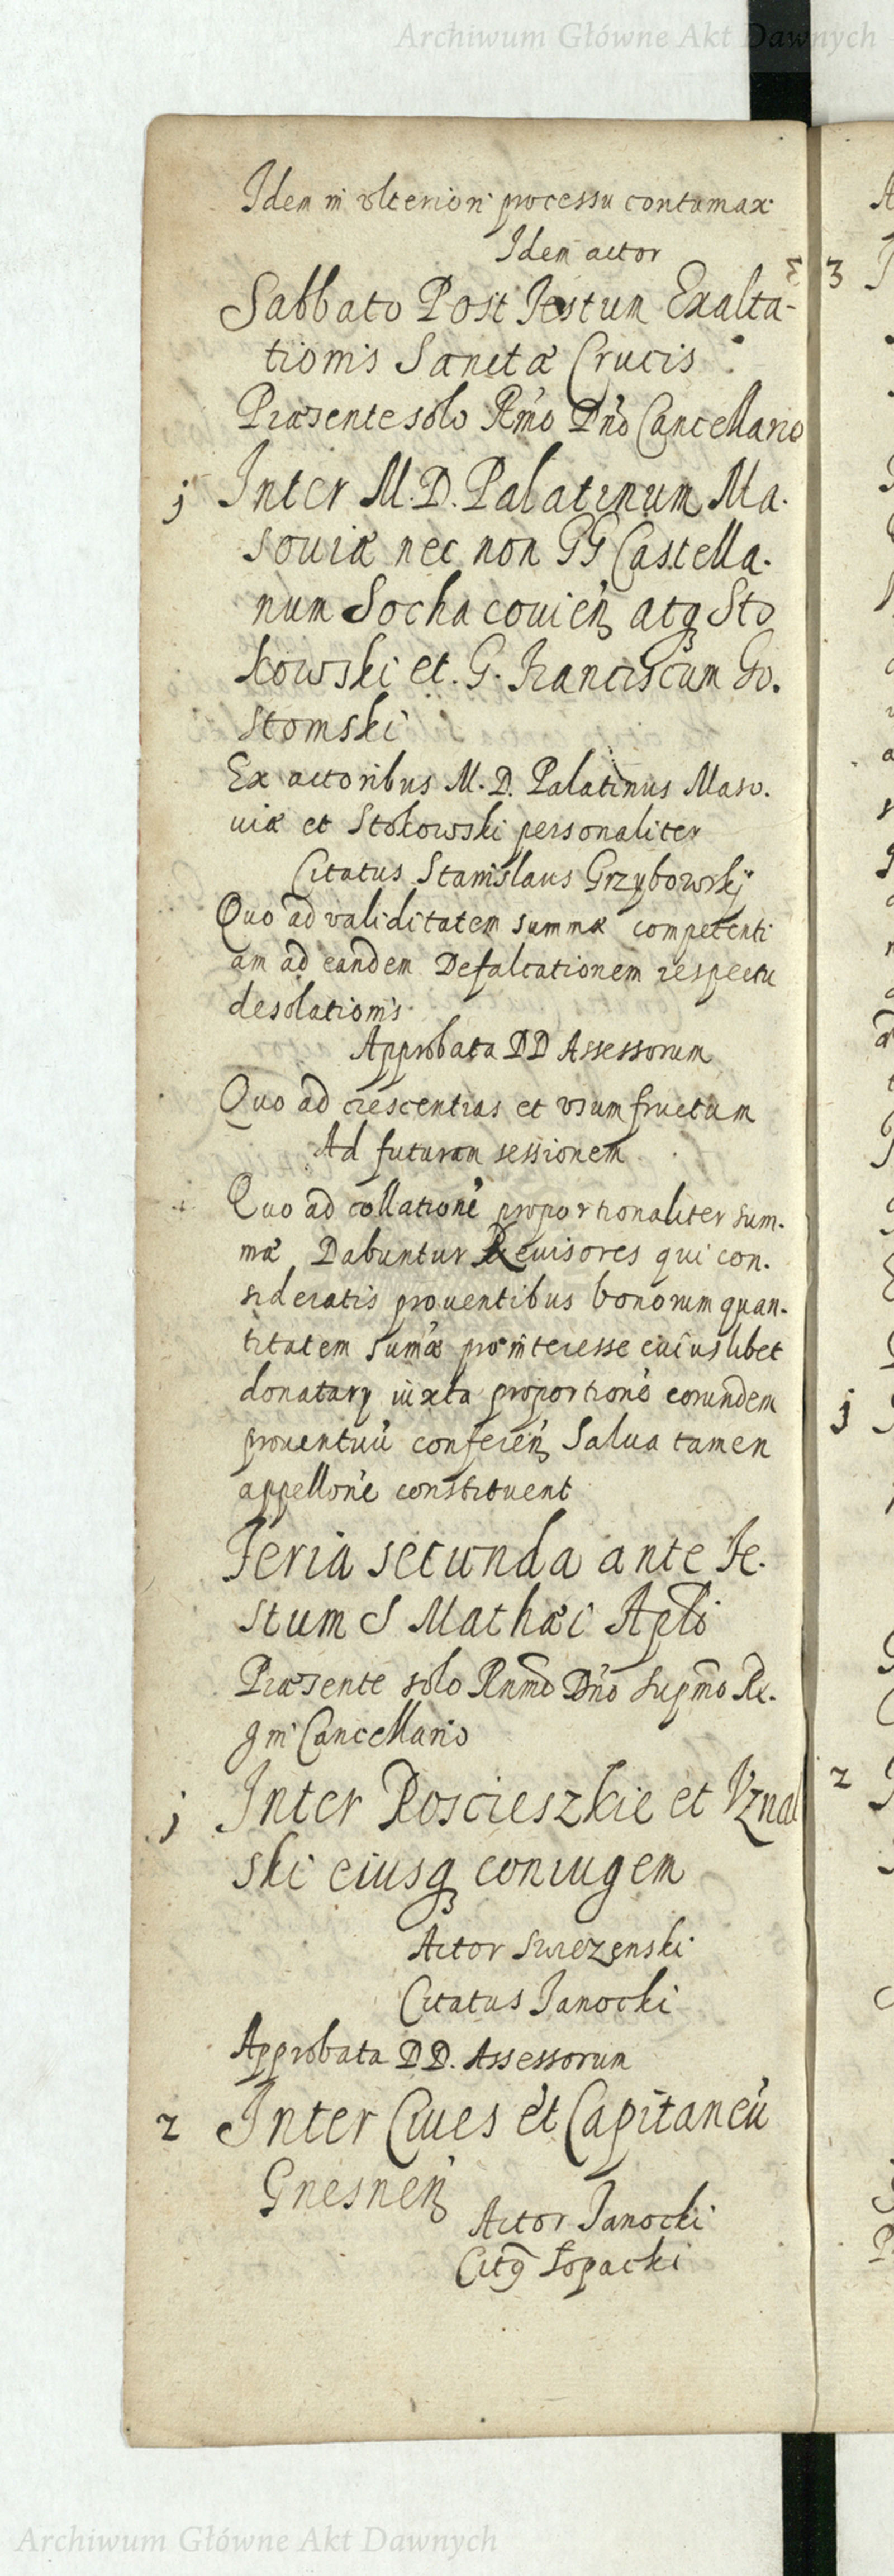 Archiwum Główne Akt Dawnych
Idem in vlteriori processu contumax
Idem actor
Sabbato Post Festum Exalta-
tionis Sanctæ Crucis
Præsente solo Rm̃o Dño Cancellario
j Inter M. D. Palatinum Ma.
souiæ nec non GG Castella.
num Sochacouień atq Sto
kowski et. G. Franciscum Go.
stomski
Ex actoribus M. D. Palatinus Maso.
uiæ et Stokowski personaliter
Citatus Stanislaus Grzybowskj
Quo ad validitatem summæ competenti
am ad eandem Defalcationem respectu
desolationis
Approbata DD Assessorum
Quo ad crescentias et vsumfructum
Ad futuram sessionem
Quo ad collationē proportionaliter sum.
mæ Dabuntur Reuisores qui con.
sideratis prouentibus bonorum quan.
titatem sum̃æ pro interesse cuiuslibet
donatarÿ iuxta proportionē eorundem
prouentuū confereń Salua tamen
appellonē constituent
Feria secunda ante Fe.
stum S Mathæi Apli
Præsente solo Rnm̃o Dño Supm̃o Re.
gni Cancellario
j Inter Roscieszkie et Vznal
ski eiusq coniugem
Actor Swiezenski
Citatus Janocki
Approbata DD. Assessorum
2 Inter Ciues et Capitaneū
Gnesneń
Actor Janocki
Citq Łopacki
3
j
2
Archiwum Główne Akt Dawnych